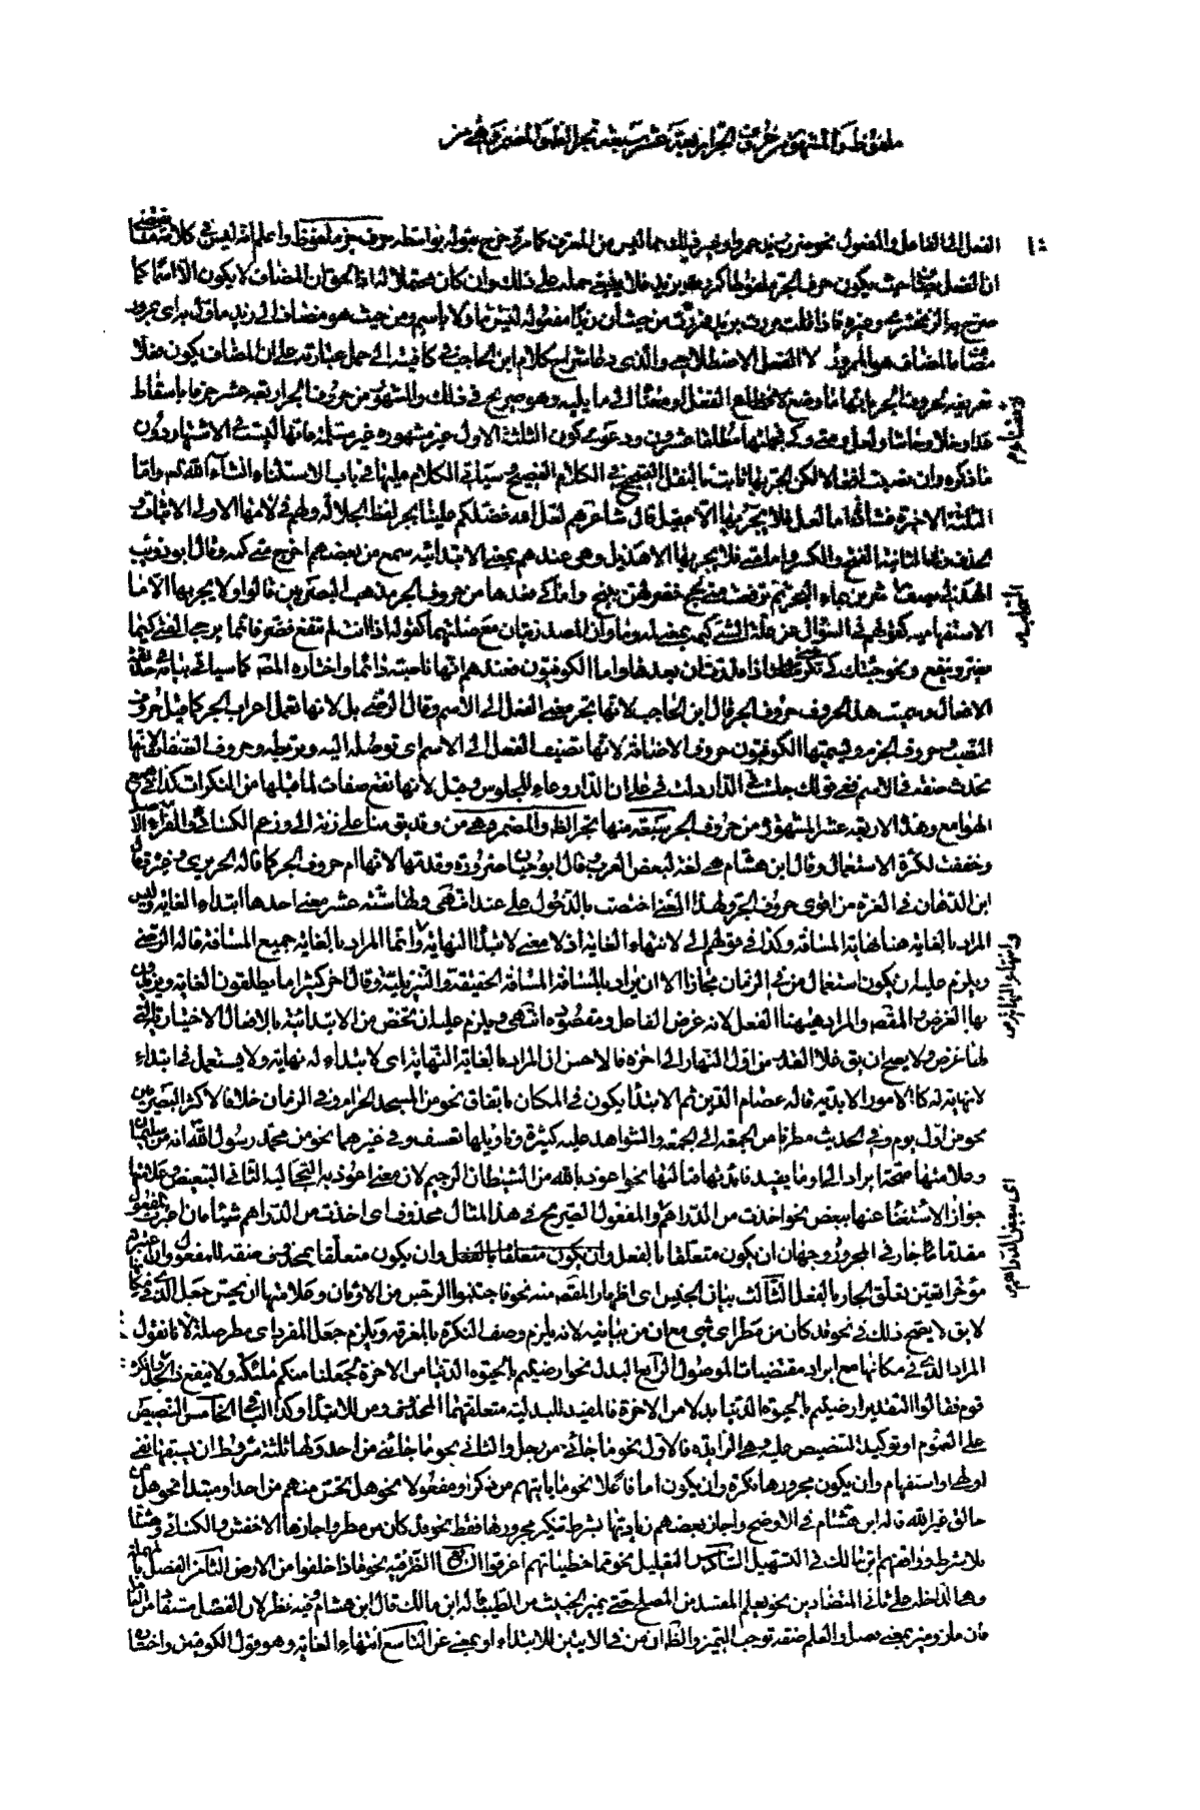 ملفوظ والمشهور من حروف الجر اربعة عشر سبعة تجر الظاهر والمضمر وهي من
الفعل الى الفاعل والمفعول نحو ضرب زيد عمروا وخرج بقوله بواسطة حرف جر ملفوظ واعلم انه ليس في كلامه
ان الفعل حيث يكون حرف الجر ملفوظا كمررت بزيد فلا ينبغي حمله على ذلك وان كان محتملا له اذا الحق ان المضاف لا يكون الا اسما كما
صرح به الزمخشري وغيره فاذا قلت مررت بزيد من حيث ان زيدا مفعوله ليس مضافا ولا باسم ومن حيث هو مضاف الى زيد ماول
مضاما المضاف هو المرور لا الفعل الاصطلاحي والذي دعا شراح كلام ابن الحاجب في كافيته الى حمل عبارته على ان المضاف يكون فعلا
تعريفه حروف الجر بانها ما وضع لافضاء الفعل او معناه الى ما يليه وهو صريح في ذلك والمشهور من حروف الجر اربعة عشر حرفا باسقاط
عدا وخلا وحاشا ولعل ومتى وكي فجملتها مطلقا عشرون ودعوى كون الثلثة الاول غير مشهورة غير مسلمة فانها ليست في الاشتهار دون
ما ذكره وان نصبت ايضا لكن الجر بها ثابت بالنقل الصحيح في الكلام الفصيح وسياتي الكلام عليها في باب الاستثناء انشاء الله تعالى واما
الثلثة الاخيرة فشاذة اما لعل فلا يجر بها الا عقيل قال شاعرهم لعل الله فضلكم علينا بجر لفظ الجلالة ولهم في لامها الاولى الاثبات و
الحذف وفي الثانية الفتح والكسر واما متى فلا يجر بها الا هذيل وهي عندهم بمعنى من الابتدائية سمع من بعضهم اخرج متى كمه وقال ابو ذؤيب
الهذلي يصف شربن بماء البحر ثم ترفعت متى لجج خضر لهن نئيج واما كي فعدها من حروف الجر مذهب البصريين قالوا ولا يجر بها الا ما
الاستفهامية كقولهم في السؤال عن علة الشئ كيمه بمعنى لمه وما وان المصدريتان مع صلتهما كقوله اذا انت لم تنفع فضر فانما يرجى الفتى كيما
يضر وينفع ونحو جئتك كي تكرمني اذا قدرت ان بعدها واما الكوفيون فعندهم انها ناصبة دائما واختاره المصنف كما سياتي بيانه في حديقة
الافعال وسميت هذه الحروف حروف الجر قال ابن الحاجب لانها تجر معنى الفعل الى الاسم وقال الرضي بل لانها تعمل اعراب الجر كما قيل حروف
النصب وحروف الجزم ويسميها الكوفيون حروف الاضافة لانها تضيف الفعل الى الاسم اي توصله اليه وتربطه وحروف الصفات لانها
تحدث صفة في الاسم ففي قولك جلست في الدار دلت في على ان الدار وعاء للجلوس وقيل لانها تقع صفات لما قبلها من النكرات كذا في همع
الهوامع وهذه الاربعة عشر المشهورة من حروف الجر سبعة منها تجر الظاهر والمضمر وهي من وقد يق منا على زنة الى وزعم الكسائي والفراء انها الاصل
وخففت لكثرة الاستعمال وقال ابن هشام هي لغة لبعض العرب قال ابو حيان ضرورة وقدمها لانها ام حروف الجر كما قاله الحريري وغيره قال
ابن الدهان في الغرة من اقوى حروف الجر ولهذا المعنى اختصت بالدخول على عند انتهى ولها ستة عشر معنى احدها ابتداء الغاية وليس
المراد بالغاية هنا نهاية المسافة وكذا في قولهم الى لانتهاء الغاية اذ لا معنى لابتداء النهاية وانما المراد بالغاية جميع المسافة قاله الرضي
ويلزم عليه ان يكون استعمال من في الزمان مجازا الا ان يراد بالمسافة المسافة الحقيقية والتنزيلية وقال اخر كثيرا ما يطلقون الغاية ويريدون
بها الغرض والمقصد والمراد هيهنا الفعل لانه غرض الفاعل ومقصوده انتهى ويلزم عليه ان تختص من الابتدائية بالافعال الاختيارية التي
لها غرض ولا يصح ان يق فلان من اول النهار الى اخره فالاحسن ان المراد بالغاية النهاية اي لابتداء له نهاية ولا يستعمل في ابتداء
لا نهاية له كالامور الابدية قاله عصام الدين ثم الابتداء يكون في المكان باتفاق نحو من المسجد الحرام وفي الزمان خلافا لاكثر البصريين
نحو من اول يوم وفي الحديث مطرنا من الجمعة الى الجمعة والشواهد عليه كثيرة وتاويلها تعسف وفي غيرهما نحو من محمد رسول الله انه من سليمان
وعلامتها صحة ايراد الى او ما يفيد فائدتها قبالتها نحو اعوذ بالله من الشيطان الرجيم لان معنى اعوذ به التجئ اليه الثاني التبعيض وعلامتها
جواز الاستغناء عنها ببعض نحو اخذت من الدراهم والمفعول الصريح في هذا المثال محذوف اي اخذت من الدراهم شيئا
مقدما جاز في المجرور وجهان ان يكون متعلقا بالفعل وان يكون متعلقا بمحذوف صفة للمفعول وان
مؤخرا تعين تعلق الجار بالفعل الثالث بيان الجنس اي اظهار المقصد منه نحو فاجتنبوا الرجس من الاوثان وعلامتها ان يحسن جعل الذي في مكانها
لا يق لا يصح ذلك في نحو قد كان من مطر اي شئ من مطر لانه يلزم وصف النكرة بالمعرفة ويلزم جعل المفرد اي مطر صلة لانا نقول
المراد الذي في مكانها مع ايراد مقتضيات الموصول الرابع البدل نحو ارضيتم بالحيوة الدنيا من الاخرة لجعلنا منكم ملئكة ولا ينفع ذا الجد منك الجد وانكره
قوم فقالوا التقدير ارضيتم بالحيوة الدنيا بدلا من الاخرة فالمفيد للبدلية متعلقها المحذوف ومن للابتداء وكذا الباقي الخامس التنصيص
على العموم او توكيد التنصيص عليه وهي الزائدة فالاول نحو ما جائني من رجل والثاني نحو ما جائني من احد ولها ثلثة شروط ان يسبقها نفي
او نهي او استفهام وان يكون مجرورها نكرة وان يكون اما فاعلا نحو ما ياتيهم من ذكر او مفعولا نحو هل تحس منهم من احد او مبتدا نحو هل من
خالق غير الله قاله ابن هشام في الاوضح واجاز بعضهم زيادتها بشرط تنكير مجرورها فقط نحو قد كان من مطر واجازها الاخفش والكسائي وهشام
بلا شرط ووافقهم ابن مالك في التسهيل السادس التعليل نحو مما خطيئاتهم اغرقوا السابع الظرفية نحو ماذا خلقوا من الارض الثامن الفصل بالمهملة
وهي الداخلة على ثاني المتضادين نحو يعلم المفسد من المصلح حتى يميز الخبيث من الطيب قاله ابن مالك قال ابن هشام وفيه نظر لان الفصل مستفاد من العامل
فان ماز وميز بمعنى فصل والعلم صفة توجب التميز والظاهر ان من في الايتين للابتداء او بمعنى عن التاسع انتهاء الغاية وهو قول الكوفيين واختاره
اي بعض الدراهم